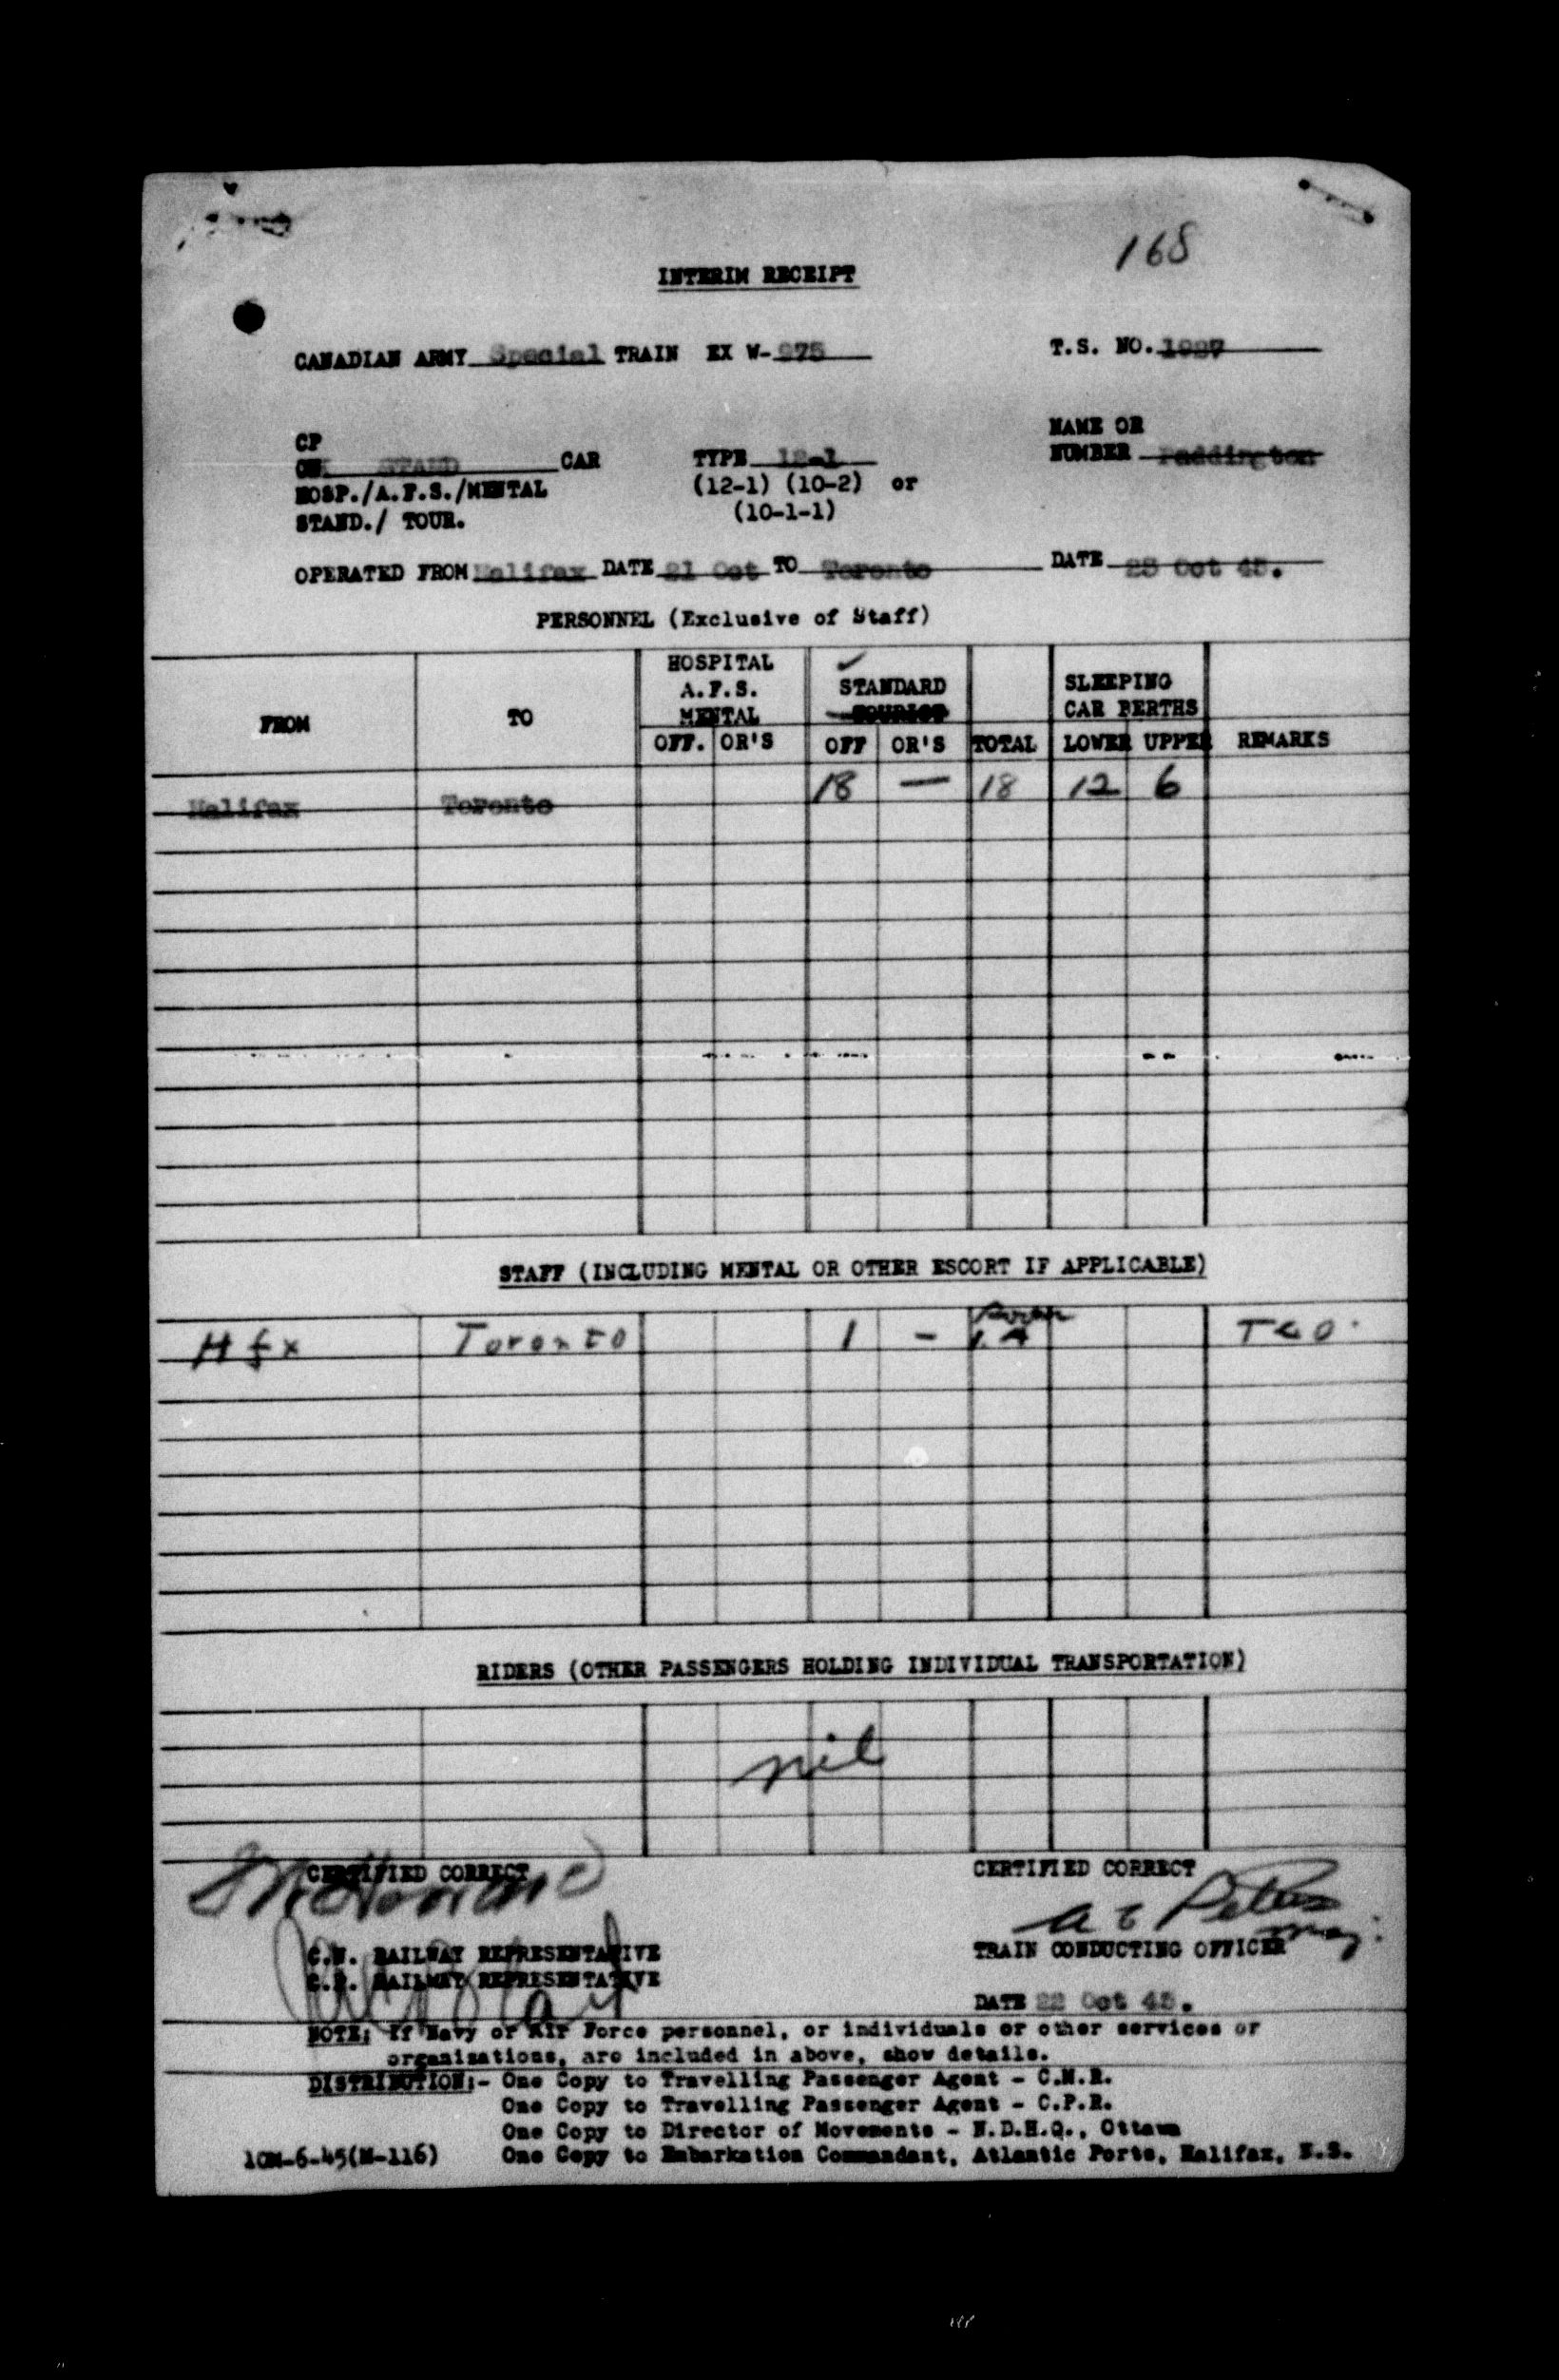 168
INTERIM RECEIPT
CANADIAN ARMY Special TRAIN EX W-975 T.S. NO. 1987
CP NAME OR
CN STAND CAR TYPE 12-1 NUMBER Paddington
HOSP./A.F.S./MENTAL (12-1) (10-2) or
STAND./ TOUR. (10-1-1)
OPERATED FROM Halifax DATE 21 Oct TO Toronto DATE 23 Oct 45.
PERSONNEL (Exclusive of Staff)
HOSPITAL
A.F.S. STANDARD SLEEPING
FROM TO MENTAL TOURIST CAR BERTHS
OFF. OR'S OFF OR'S TOTAL LOWER UPPER REMARKS
Halifax Toronto 18 — 18 12 6
STAFF (INCLUDING MENTAL OR OTHER ESCORT IF APPLICABLE)
Hfx Toronto 1 - TCO.
RIDERS (OTHER PASSENGERS HOLDING INDIVIDUAL TRANSPORTATION)
nil
CERTIFIED CORRECT CERTIFIED CORRECT
A E Peters
Maj.
C.N. RAILWAY REPRESENTATIVE TRAIN CONDUCTING OFFICER
C.P. RAILWAY REPRESENTATIVE
DATE 22 Oct 45.
NOTE: If Navy or Air Force personnel, or individuals or other services or
organisations, are included in above, show details.
DISTRIBUTION:- One Copy to Travelling Passenger Agent - C.N.R.
One Copy to Travelling Passenger Agent - C.P.R.
One Copy to Director of Movements - N.D.H.Q., Ottawa
10M-6-45(M-116) One Copy to Embarkation Commandant, Atlantic Ports, Halifax, N.S.